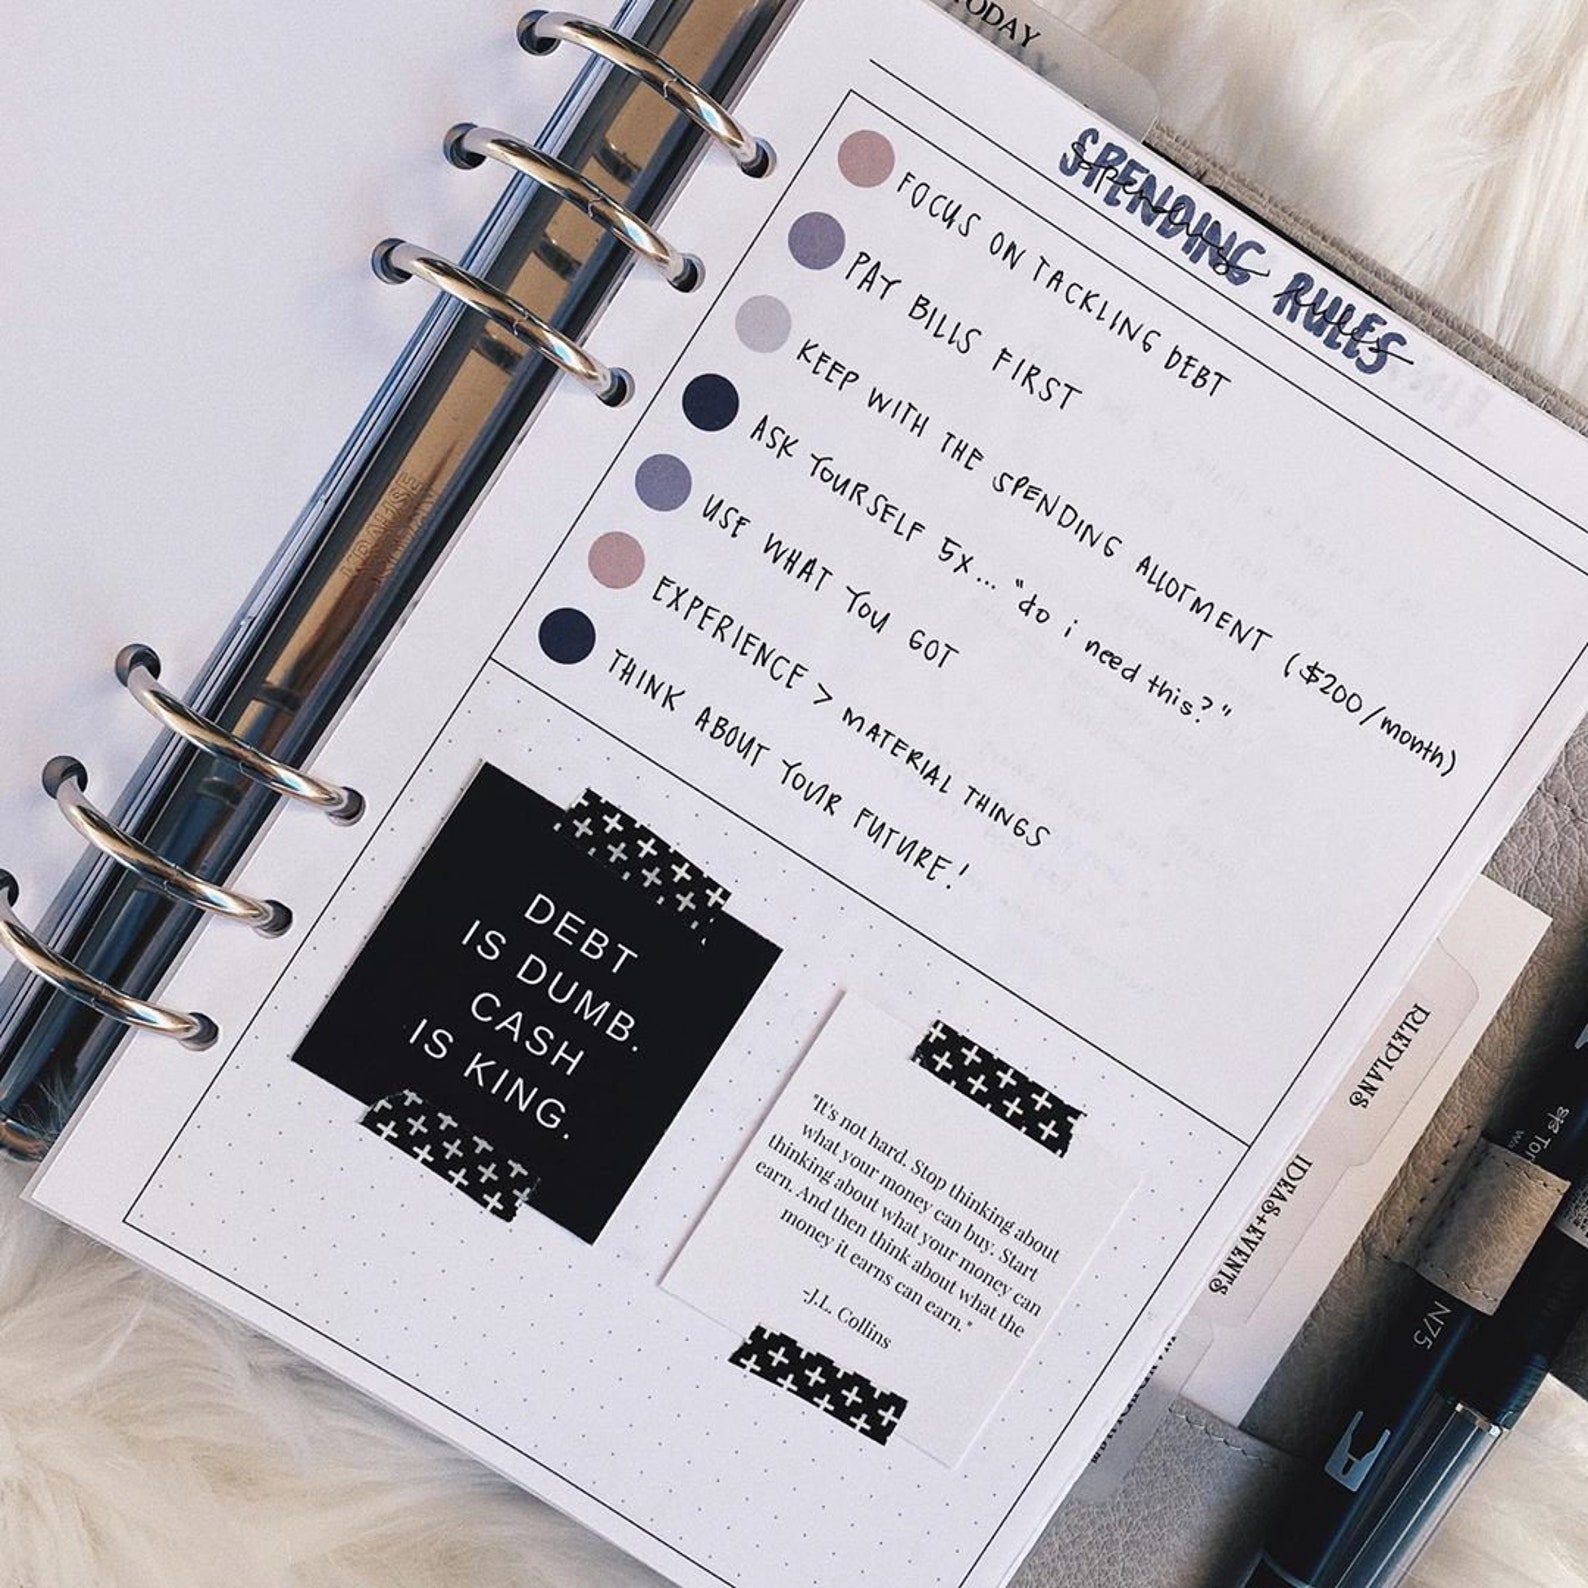 TODAY
SPENDING RULES
spending rules
FOCUS ON TACKLING DEBT
PAY BILLS FIRST
KEEP WITH THE SPENDING ALLOTMENT ($200/month)
ASK YOURSELF 5X... "do i need this?"
USE WHAT YOU GOT
EXPERIENCE > MATERIAL THINGS
THINK ABOUT YOUR FUTURE!
DEBT
IS DUMB.
CASH
IS KING.
"It's not hard. Stop thinking about
what your money can buy. Start
thinking about what your money can
earn. And then think about what the
money it earns can earn."
-J.L. Collins
IDEAS+EVENTS
N75